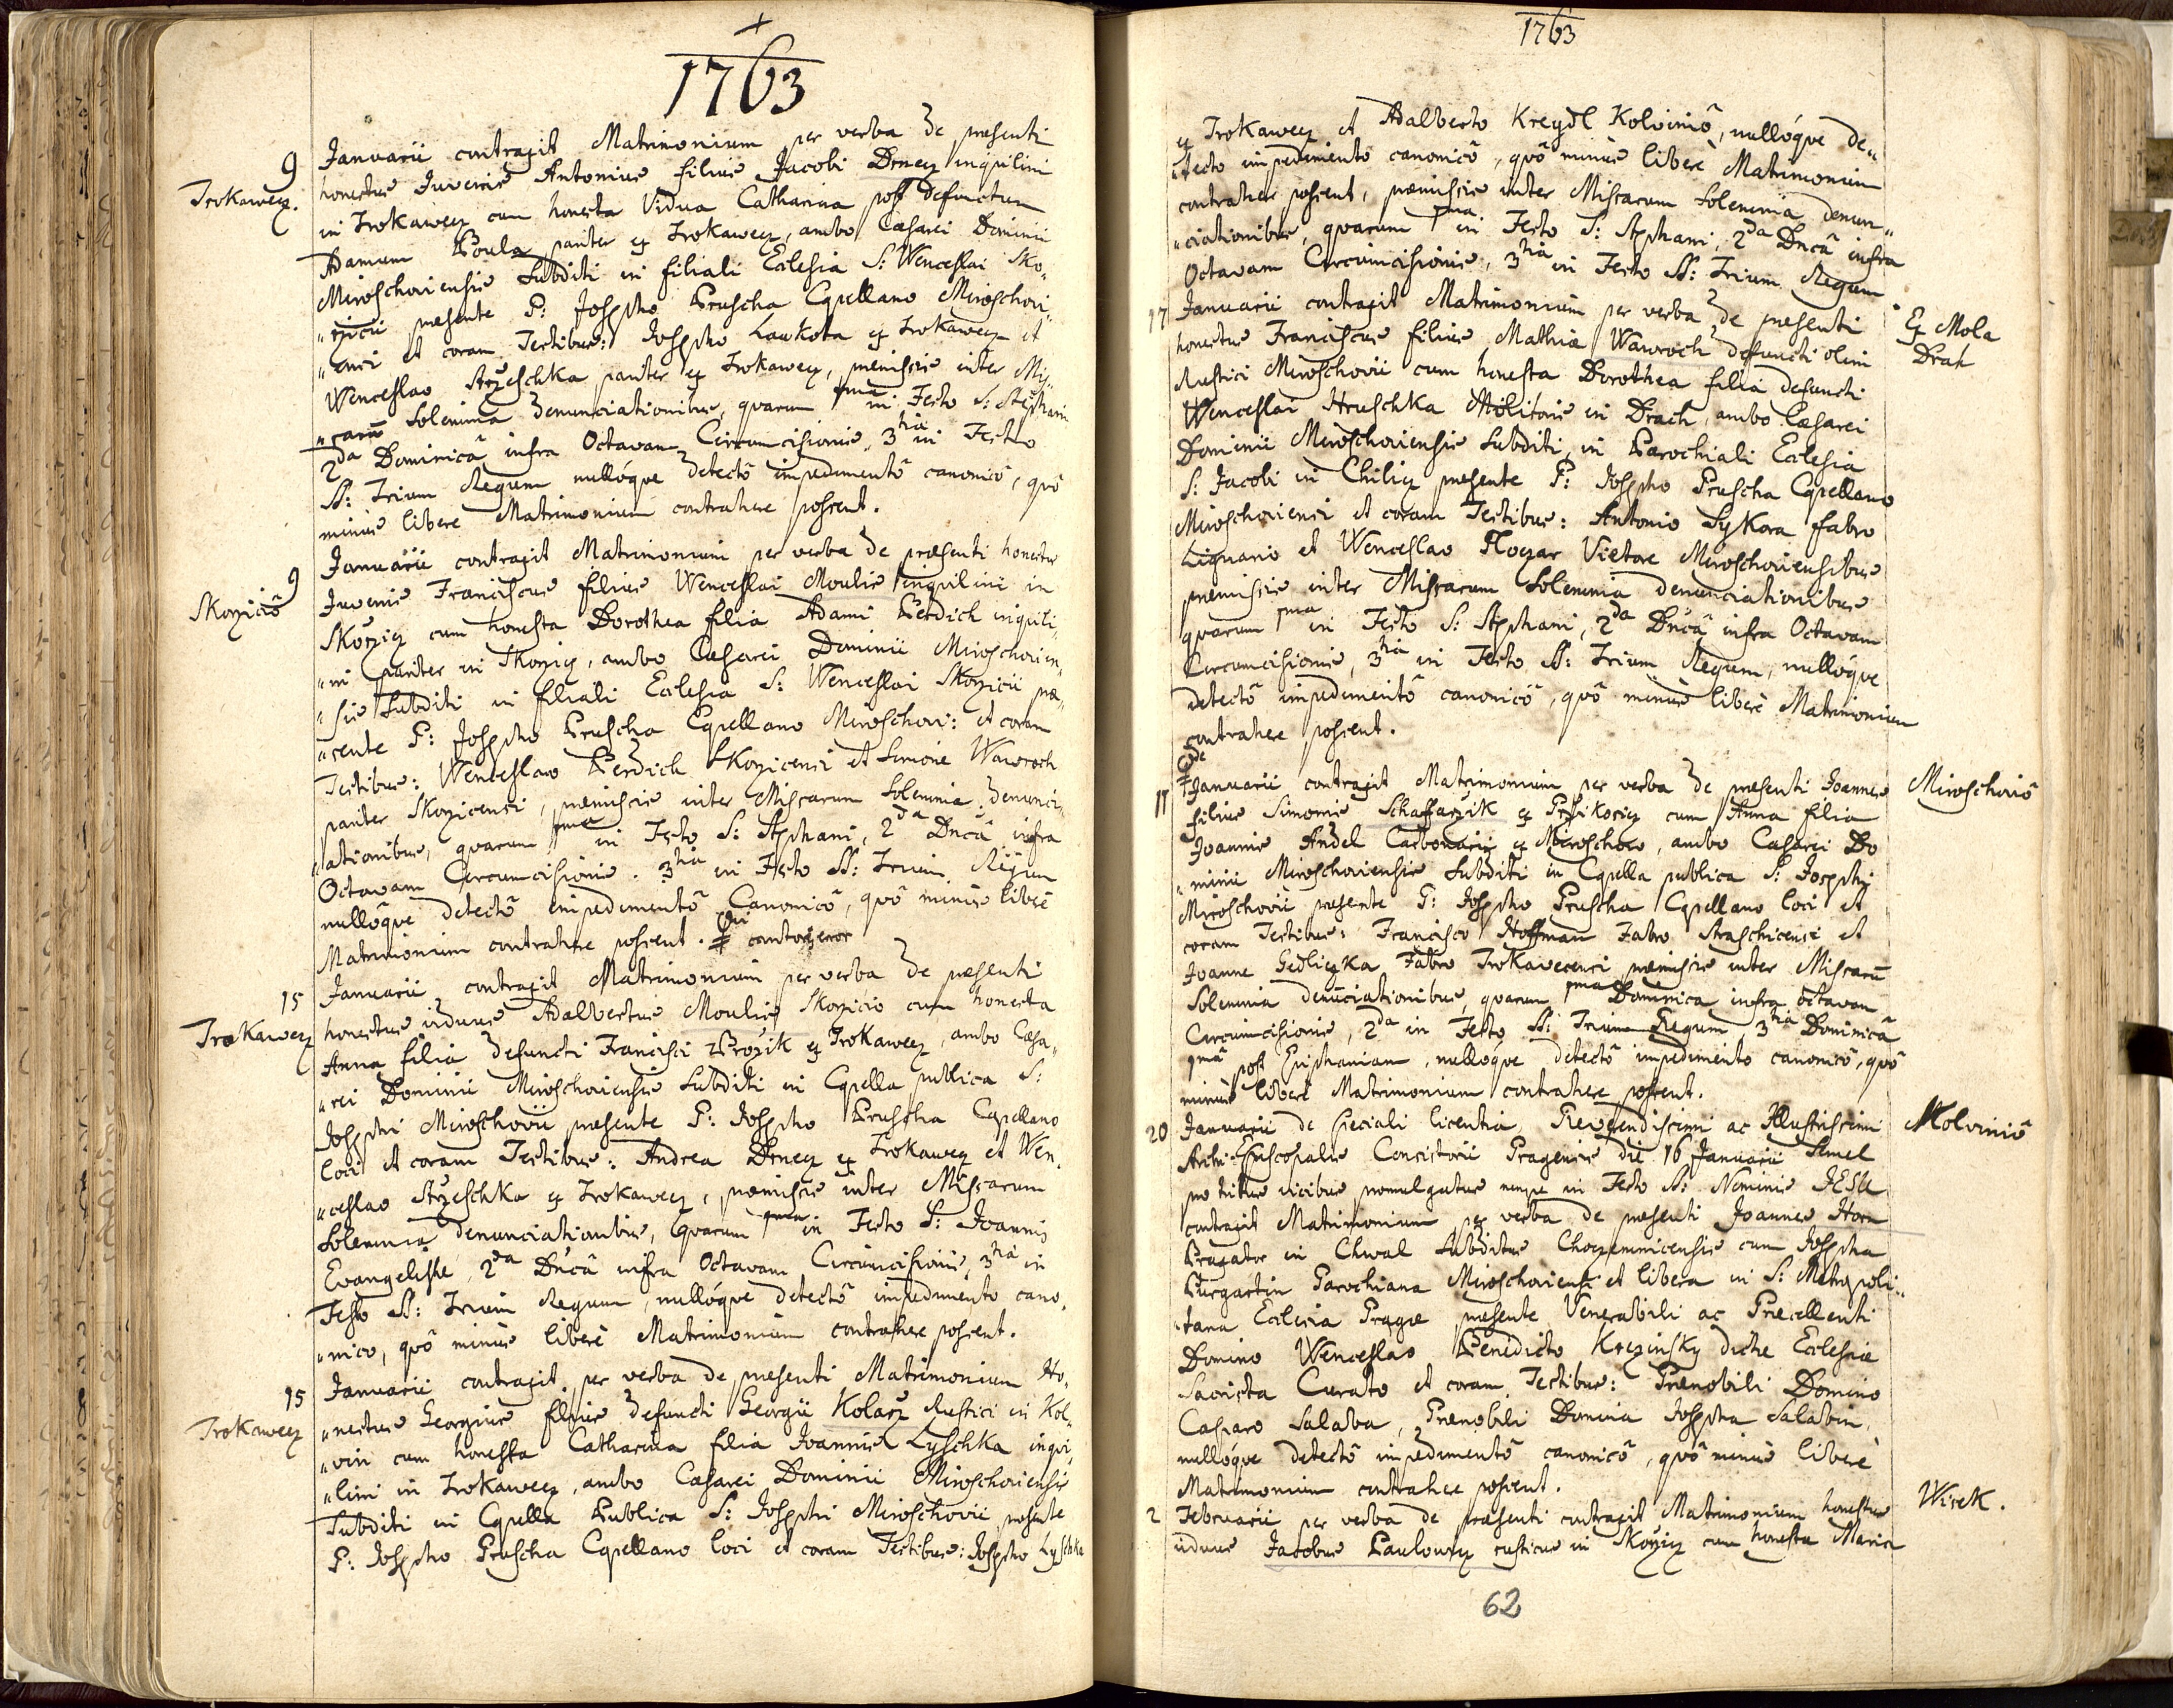 1763
9
Januarii contraxit Matrimonium per verba de praesenti
Trokawecz.
honestus Juvenis Antonius filius Jacobi Drnecz inquilini
in Trokawecz cum honesta Vidua Catharina post defunctum
Adamum Boula pariter ex Trokawecz, ambo Caesarei Dominii
Miroschoviensis Subditi in filiali Eclesia S: Wenceslai Sko„
„rzicii praesente P: Josepho Pruscha Capellano Miroschovi„
„ensi et coram Testibus: Josepho Laukota ex Trokawecz et
Wenceslao Strzeschka pariter ex Trokawecz, praemissis inter Mis„
„sarum Solemnia denunciationibus, quarum 1ma in Festo S: Stephani
2da Dominicâ infra Octavam Circumcisionis, 3tia in Festo
SS: Trium Regum nullóque detectô impedimentô canonicô, quô
minus libere Matrimonium contrahere possent.
9
Januarii contraxit Matrimonium per verba de praesenti honestus
Skorziciô
Juvenis Franciscus filius Wenceslai Moulis inquilini in
Skorzicz cum honesta Dorothea filia Adami Berdich inquili„
„ni pariter in Skorzicz, ambo Caesarei Dominii Miroschovien„
„sis Subditi in filiali Eclesia S: Wenceslai Skorzicii prae„
„sente P: Josepho Pruscha Capellano Miroschovi: et coram
Testibus: Wenceslao Berdich Skorzicensi et Simone Wawroch
pariter Skorzicensi, praemissis inter Missarum Solemnia denunci„
„ationibus, quarum 1ma in Festo S: Stephani, 2da Dncâ infra
Octavam Circumcisionis. 3tia in Festo SS: Trium Regum
nullôque detectô impedimentô Canonicô, quô minus liberè
Matrimonium contrahere possent.
15
Januarii contraxit Matrimonium per verba de praesenti
Trokawecz
honestus viduus Adalbertus Moulis Skorzicio cum honesta
Anna filia defuncti Francisci Brozik ex Trokawecz, ambo Caesa„
„rei Dominii Miroschoviensis Subditi in Capella publica S:
Josephi Miroschovii praesente P: Josepho Pruscha Capellano
loci et coram Testibus: Andrea Drnecz ex Trokawecz et Wen„
„ceslao Strzeschka ex Trokawecz, praemissis inter Missarum
Solemnia denunciationibus, quarum 1ma in Festo S: Joannis
Evangelistae, 2da Dncâ infra Octavam Circumcisionis, 3tia in
Festo SS: Trium Regum, nullóque detectô impedimento cano„
„nico, quô minus liberè Matrimonium contrahere possent.
15
Januarii contraxit per verba de praesenti Matrimonium Ho„
Trokawecz
„nestus Georgius filius defuncti Georgii Kolarz Rustici in Kol„
„vin cum honesta Catharina filia Joannis Lyschka inqui„
„lini in Trokawecz, ambo Caesarei Dominii Miroschoviensis
Subditi in Capella Publica S: Josephi Miroschovii praesente
P: Josepho Pruscha Capellano loci et coram Testibus: Josepho Lyschka
1763
ex Trokawecz et Adalberto Kreydl Kolviniô, nullóque de„
„tecto impedimentô canonicô, quô minus liberè Matrimonium
contrahere possent, praemissis inter Missarum Solemnia denun„
„ciationibus, quarum 1ma in Festo S: Stephani, 2da Dncâ infra
Octavam Circumcisionis, 3tia in Festo SS: Trium Regum
17
Januarii contraxit Matrimonium per verba de praesenti
Ex Mola
Drak
honestus Franciscus filius Mathiae Wawroch defuncti olim
Rustici Miroschovii cum honesta Dorothea filia defuncti
Wenceslai Hruschka Molitoris in Drach, ambo Caesarei
Dominii Miroschoviensis Subditi, in Parochiali Eclesia
S: Jacobi in Chilicz praesente P: Josepho Pruscha Capellano
Miroschoviensi et coram Testibus: Antonio Sykora Fabro
Lignario et Wenceslao Floczar Vietore Miroschoviensibus
praemissis inter Missarum Solemnia denunciationibus
quarum 1ma in Festo S: Stephani, 2da Dncâ infra Octavam
Circumcisionis, 3tia in Festo SS: Trium Regum, nullóque
detectô impedimentô canonicô, quô minus liberè Matrimonium
contrahere possent.
17
Januarii contraxit Matrimonium per verba de praesenti Joannes
Miroschoviô
filius Simonis Schaffarzik ex Przikosicz cum Anna filia
Joannis Andel Carbonarij ex Miroschow, ambo Caesarei Do
„minii Miroschoviensis Subditi in Capella publica S: Josephi
Miroschovii praesente P: Josepho Pruscha Capellano loci et
coram Testibus: Francisco Hoffman Fabro Straschicensi et
Joanne Sedliczka Fabro Trokavecensi praemissis inter Missarū
Solemnia denūciationibus, quarum 1ma Dominica infra octavam
Circumcisionis, 2da in Festo SS: Trium Regum, 3tia Dominicâ
1mâ post Epiphaniam, nullóque detectô impedimento canonicô, quô
minus liberè Matrimonium contrahere possent.
20
Januarii de speciali licentia Reverendissimi ac Illustrissimi
Kolviniô
Archi-Episcopalis Consistorii Pragensis die 16 Januarii Semel
pro tribus vicibus promulgatus nempe in Festo SS. Nominis JESU
contraxit Matrimonium per verba de praesenti Joannes Horn
in Chwal Subditus cum Josepha
Purgartin Parochiana Miroschoviensi et libera in S: Metropoli„
„tana Eclesia Pragae praesente Venerabili ac Praecellenti
Domino Wenceslao Benedicto dictae Ecclesiae
Sacrista Curato et coram Testibus: Praenobili Domino
Casparo Salaba, Praenobili Domina Josepha Salabin,
nullóque detectô impedimentô canonicô, quô minus liberè
Matrimonium contrahere possent.
2
Februarii per verba de praesenti contraxit Matrimonium honestus
Wisek.
viduus Jacobus Paulowsky rusticus in Skorzicz cum honesta Maria
62